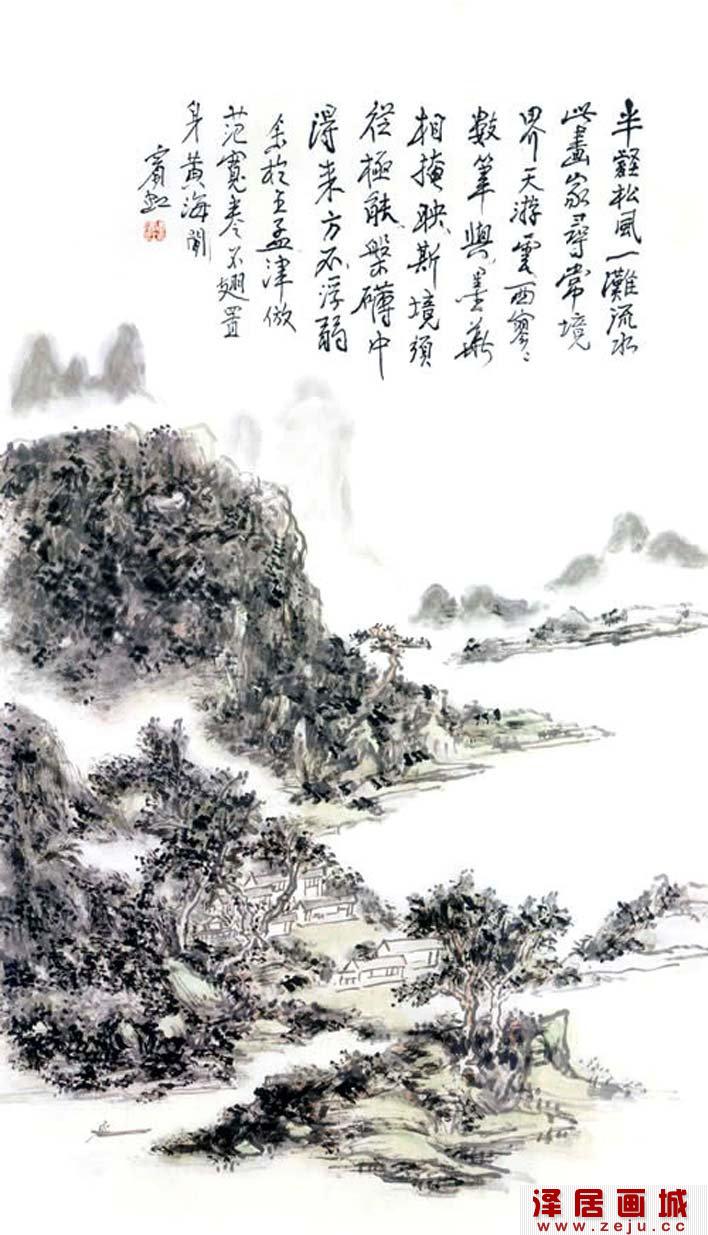 半壑松風一灘流水
此畫家尋常境
界天游雲西寥〻
數筆與墨華
相掩映斯境須
從極能槃礴中
得来方不浮弱
余於王孟津倣
范寬卷不翅置
身黄海間
賓虹
泽居画城
www.zeju.cc